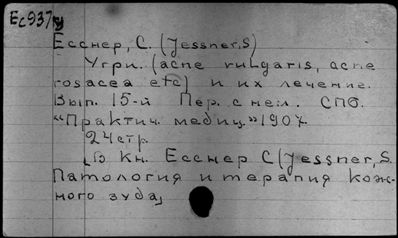 Ес937у
Есснер, С. (Jessner, S)
Угри. (acne vulgaris, acne
rosacea etc) и их лечение.
Вып. 15-й Пер. с нем. СПб.
"Практич. медиц." 1907
24стр.
[В кн. Есснер С (Jessner, S.
Патология и терапия кож-
ного зуда]